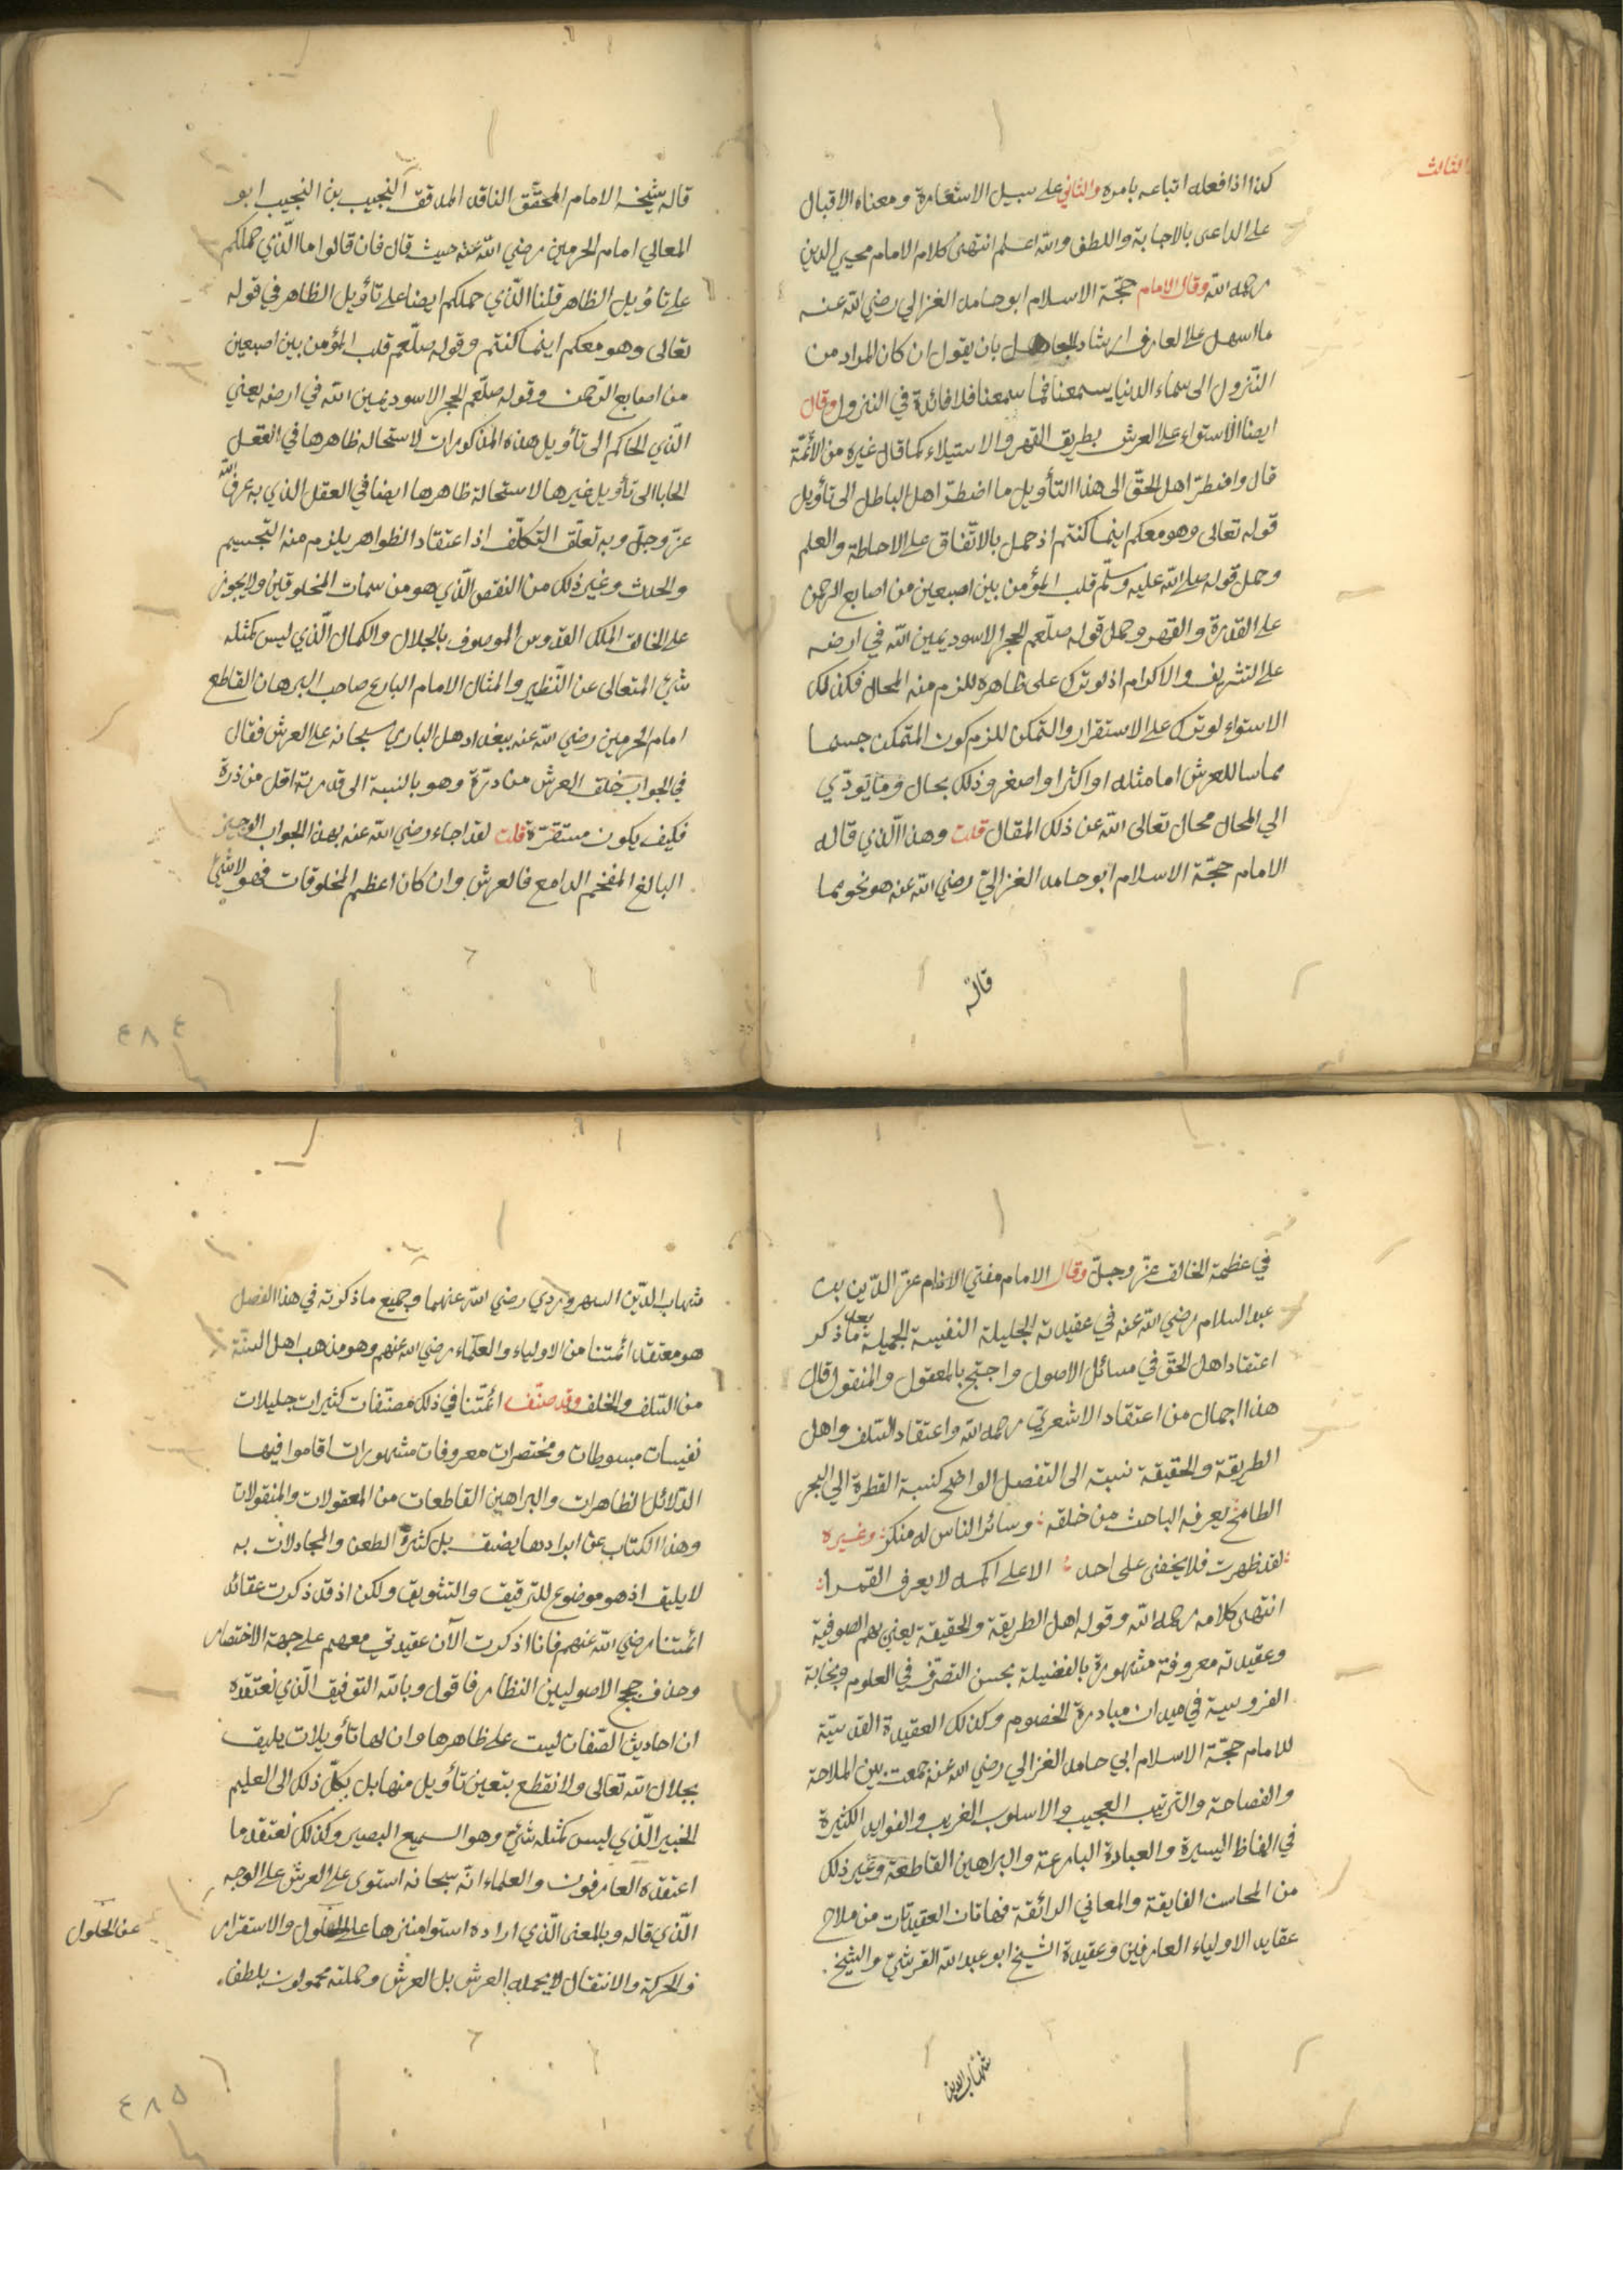 الثالث
كذا اذا فعله اتباعه بامره والثاني على سبيل الاستعارة ومعناه الاقبال
على الداعى بالاجابة واللطف والله اعلم انتهى كلام الامام محيي الدين
رحمه الله وقال الامام حجّة الاسلام ابو حامد الغزالي رضي الله عنه
ما اسهل على العارف ارشاد الجاهل بان يقول ان كان المراد من
النّزول الى سماء الدنيا يسمعنا فما سمعنا فلا فائدة في النزول وقال
ايضا الاستواء على العرش بطريق القهر والاستيلاء كما قال غيره من الأئمّة
قال واضطرّ اهل الحقّ الى هذا التأويل ما اضطرّ اهل الباطل الى تأويل
قوله تعالى وهو معكم اينما كنتم اذ حمل بالاتّفاق على الاحاطة والعلم
وحمل قوله صلى الله عليه وسلّم قلب المؤمن بين اصبعين من اصابع الرحمن
على القدرة والقهر وحمل قوله صلّعم الحجر الاسود يمين الله في ارضه
على التشريف والاكرام اذ لو ترك على ظاهره للزم منه المحال فكذلك
الاستواء لو ترك على الاستقرار والتمكن للزم كون المتمكن جسما
مماسا للعرش اما مثله او اكثر او اصغر وذلك بحال وما يودّي
الي المحال محال تعالى الله عن ذلك المقال قلت وهذا الّذي قاله
الامام حجّة الاسلام ابو حامد الغزاليّ رضي الله عنه هو نحو مما
قاله
قاله شيخه الامام المحقّق الناقد المدقق النجيب بن النجيب ابو
المعالي امام الحرمين رضي الله عنه حيث قال فان قالوا ما الّذي حملكم
على تاؤيل الظاهر قلنا الّذي حملكم ايضا على تأويل الظاهر في قوله
تعالى وهو معكم اينما كنتم وقوله صلّعم قلب المؤمن بين اصبعين
من اصابع الرّحمن وقوله صلّعم الحجر الاسود يمين الله في ارضه يعني
الّذي الحاكم الى تأويل هذه المذكورات لاستحاله ظاهرها في العقل
الجانا الى تأويل غيرها لاستحالة ظاهرها ايضا في العقل الذي به عرف الله
عزّ وجلّ وبه تعلّق التّكلّف اذ اعتقاد الظواهر يلزم منه التجسيم
والحدث وغير ذلك من النقص الّذي هو من سمات المخلوقين ولا يجوز
على الخالق الملك القدوس الموصوف بالجلال والكمال الّذي ليس كمثله
شئ المتعالى عن النّظير والمثال الامام البارع صاحب البرهان القاطع
امام الحرمين رضي الله عنه ببغداد هل الباري سبحانه على العرش فقال
في الجواب خلق العرش من درّة وهو بالنسبة الى قدرته اقل من ذرة
فكيف يكون مستقرّة قلت لقد اجاء رضي الله عنه بهذا الجواب الوجيز
البالغ المفخم الدامع فالعرش وان كان اعظم المخلوقات فهو لا شئ
٤٨٤
في عظمة الخالق عزّ وجلّ وقال الامام مفتي الانام عزّ الدّين بن
عبد السلام رضي الله عنه في عقيدته الجليلة النفيسة الجميلة بعد ما ذكر
اعتقاد اهل الحقّ في مسائل الاصول واحتج بالمعقول والمنقول قال
هذا اجمال من اعتقاد الاشعريّ رحمه الله واعتقاد السّلف واهل
الطريقة والحقيقة نسبته الى التفصيل الواضح كنسبة القطرة الي البحر
الطامح يعرفه الباحث من خلقه وسائر الناس له منكر وغيره
لقد ظهرت فلا يخفى على احد الا على اكمه لا يعرف القمرا
انتهى كلامه رحمه الله وقوله اهل الطريقة والحقيقة يعني بهم الصوفية
وعقيدته معروفة مشهورة بالفضيلة بحسن التصرّف في العلوم ونجابة
الفروسية في ميدان مبادرة الخصوم وكذلك العقيدة القدسيّة
للامام حجّة الاسلام ابي حامد الغزالي رضي الله عنه جمعت بين الملاحة
والفصاحة والترتيب العجيب والاسلوب الغريب والفوايد الكثيرة
في الفاظ اليسيرة والعبادة البارعة والبراهين القاطعة وغير ذلك
من المحاسن الفايقة والمعاني الرائقة فهاتان العقيدتان من ملاح
عقايد الاولياء العارفين وعقيدة الشيخ ابو عبد الله القرشيّ والشيخ
شهاب الدين
شهاب الدّين السهروردي رضي الله عنهما وجميع ما ذكرته في هذا الفصل
هو معتقد ائمتنا من الاولياء والعلماء رضي الله عنهم وهو مذهب اهل السنّة
من السّلف والخلف وقد صنّف ائمّتنا في ذلك مصنّفات كثيرات جليلات
نفيسات مبسوطات ومختصرات معروفات مشهورات اقاموا فيها
الدّلائل الظاهرات والبراهين القاطعات من المعقولات والمنقولات
وهذا الكتاب عن ايرادها يضيق بل كثرة الطعن والمجادلات به
لا يليق اذ هو موضوع للترقيق والتشويق ولكن اذ قد ذكرت عقائد
ائمتنا رضي الله عنهم فانا اذكرت الآن عقيدتي معهم على جهة الاختصار
وحذف حجج الاصوليين النظار فاقول وبالله التوفيق الّذي نعتقده
ان احاديث الصّفات ليست على ظاهرها وان لها تأويلات يليق
بجلال الله تعالى ولا نقطع بتعين تأويل منها بل بكلّ ذلك الى العليم
الخبير الّذي ليس كمثله شئ وهو السميع البصير وكذلك نعتقد ما
اعتقده العارفون والعلماء انّه سبحانه استوى على العرش على الوجه
الّذي قاله وبالمعنى الّذي اراده استوا منزها على الحلول والاستقرار
عن الحلول
والحركة والانتقال لا يحمله العرش بل العرش وحملته محمولون بلطف
٤٨٥